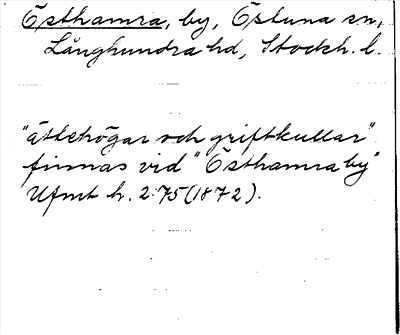 Östhamra, by, Östuna sn,
Långhundra hd, Stockh. l.
"ättehögar och griftkullar"
finnas vid "Östhamra by"
Ufmt h. 2:75 (1872).